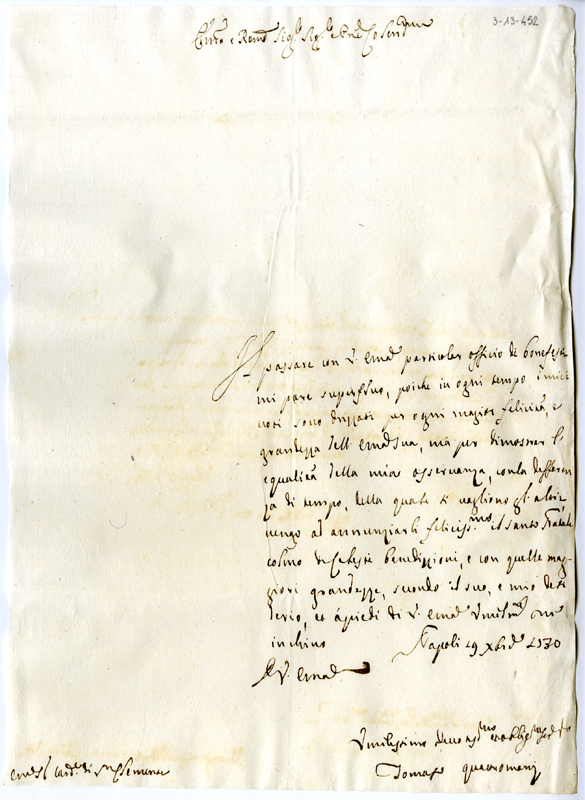 3-13-452
Em.mo e Rev.mo Sig.r Sig.r e Pad.
Il passare con V. Em.za particolar officio di bonefeste
mi pare superfluo, poiche in ogni tempo i miei
voti sono drizzati per ogni magior felicità, e
grandezza dell'Em.za Sua, mà per dimostrar l'
equalità della mia osservanza, con la differen
za di tempo, della quale si vagliono gl'altri
vengo ad annunziarli feliciss.mo il santo Natale
colmo di Celesti benedizzioni, e con quelle mag
giori grandezze, secondo il suo, e mio desi
derio, et à piedi di V. Em.za
inchino Napoli 19 Xbre 1730
Di V. Em.za
Umilissimo
Em. Sr Card.e di S. Clemente
Tomaso Quattromani